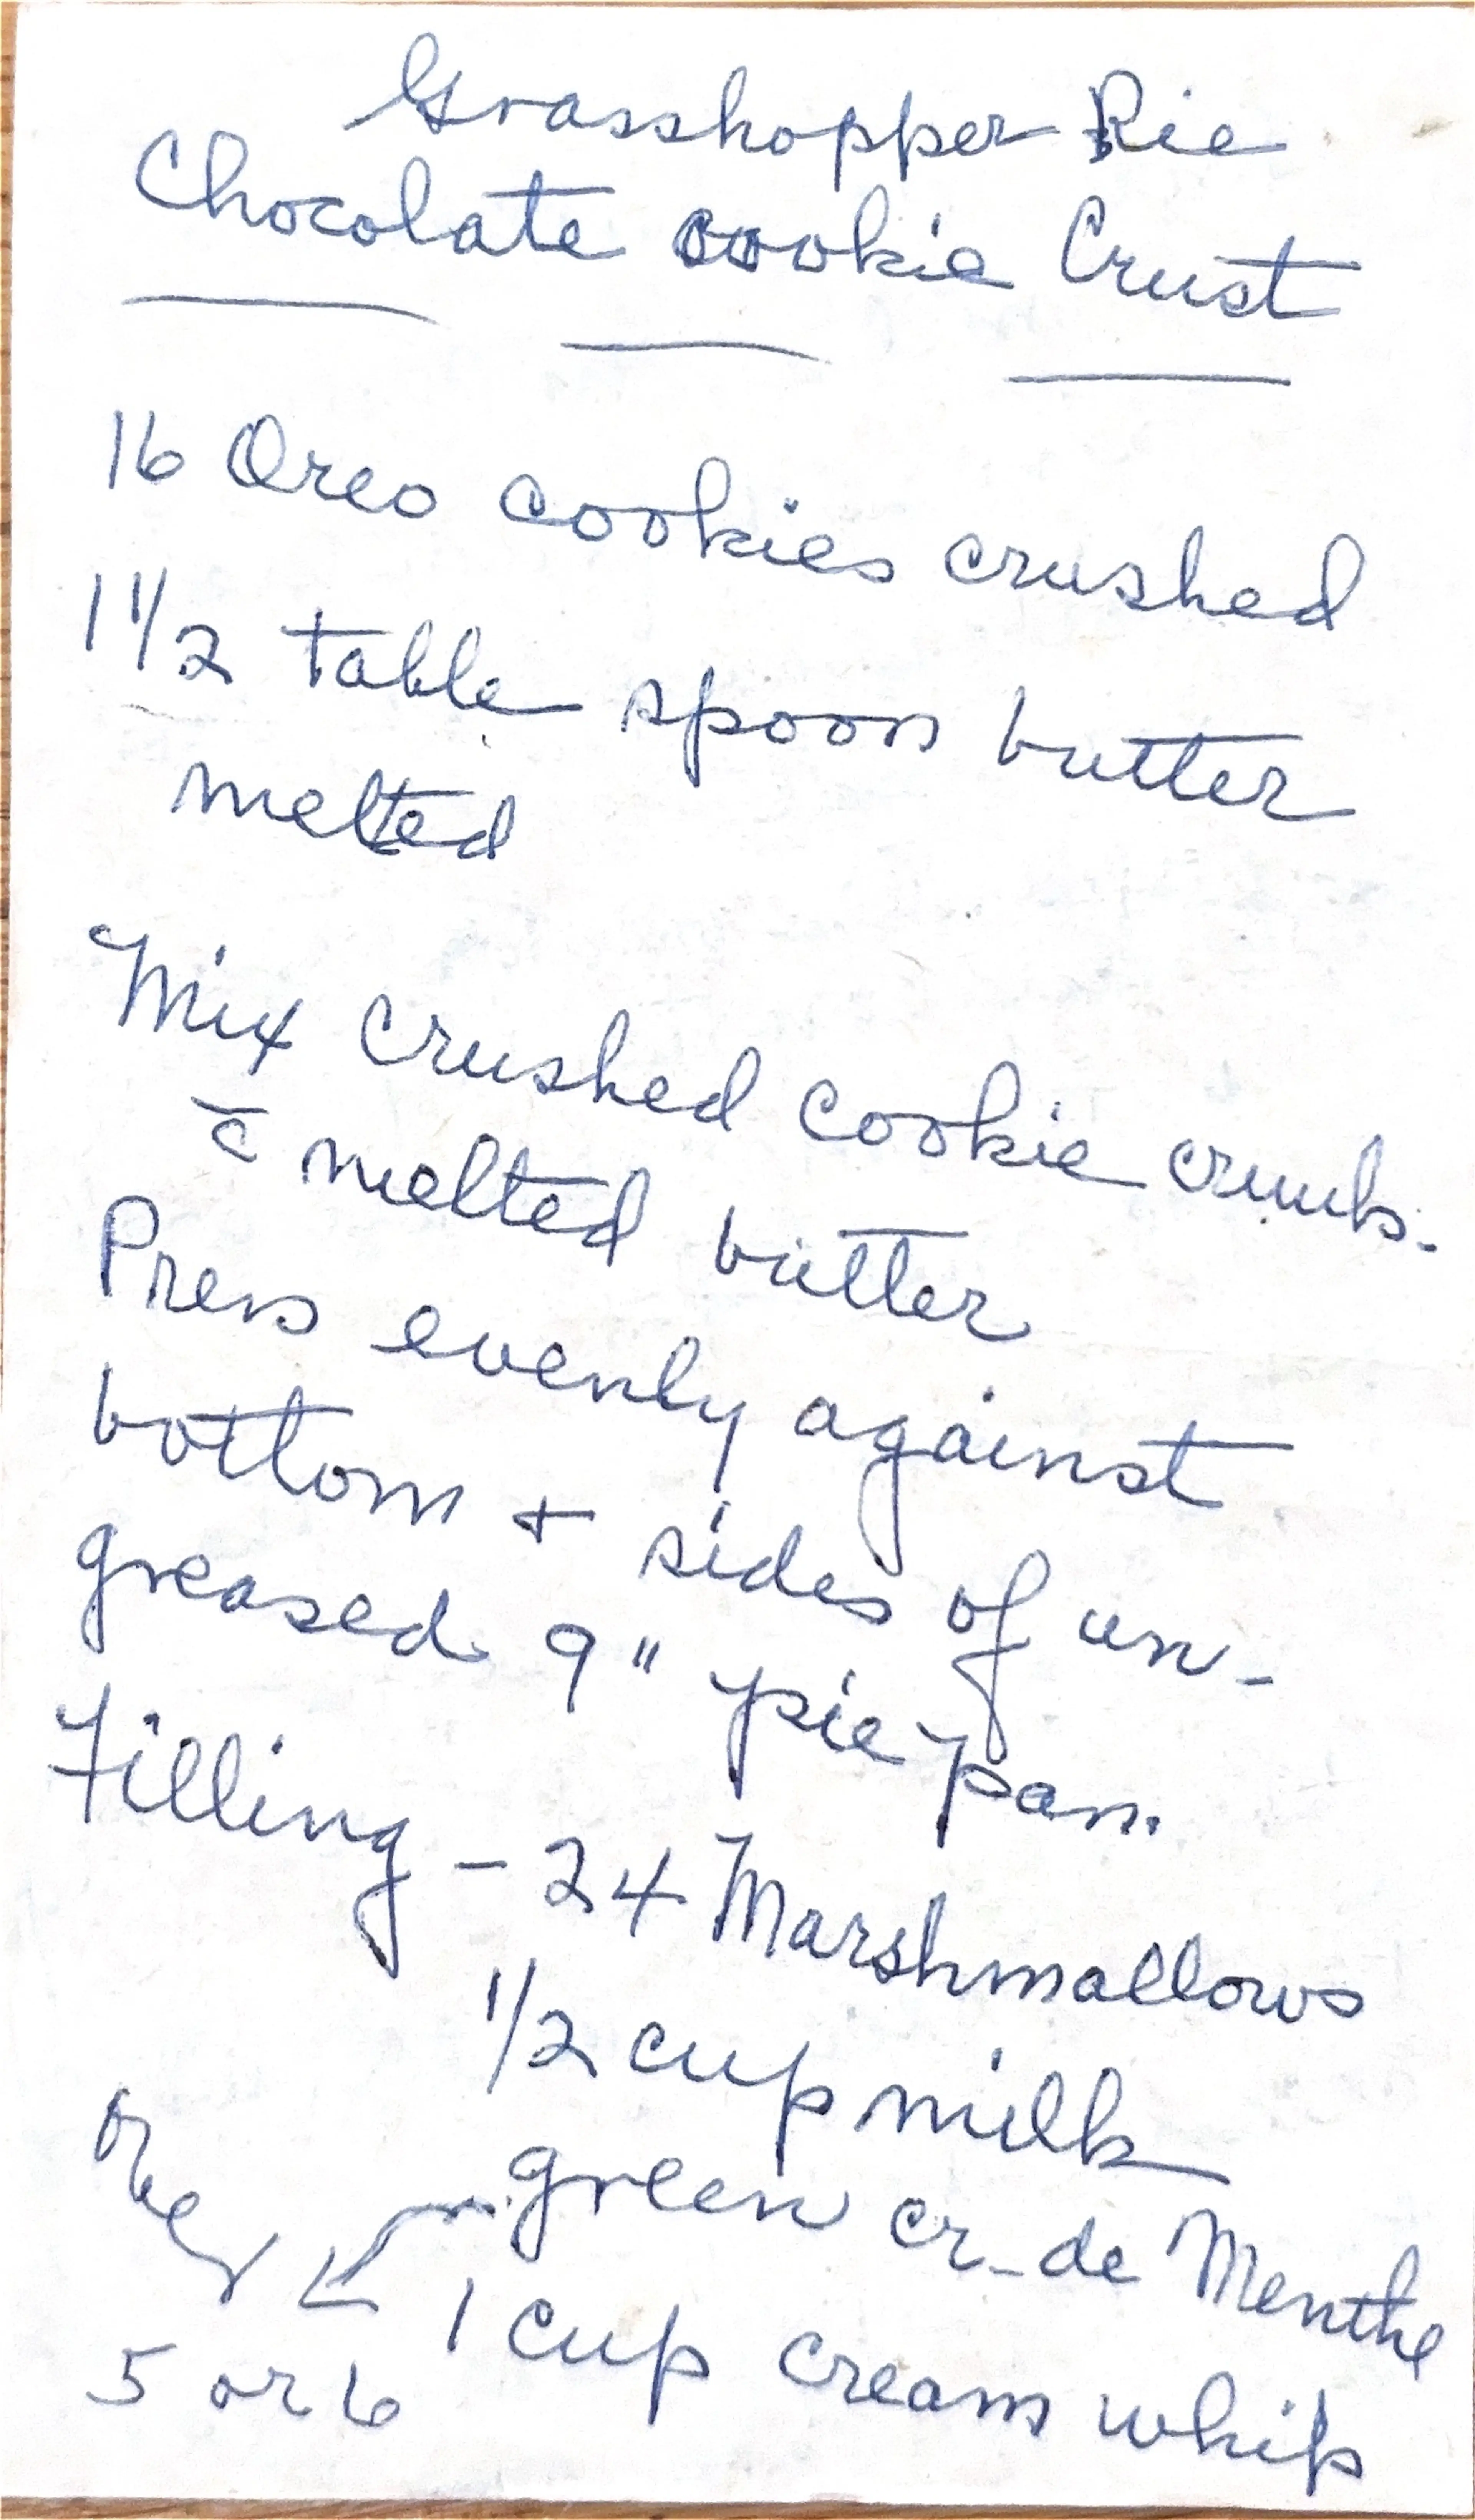 Grasshopper Pie
Chocolate cookie Crust
16 Oreo cookies crushed
1 1/2 table spoon butter
melted
Mix crushed cookie crumbs.
c̄ melted butter
Press evenly against
bottom + sides of un-
greased 9" pie pan.
Filling - 24 Marshmallows
1/2 cup milk
green cr-de Menthe
1 cup cream whip
5 or 6